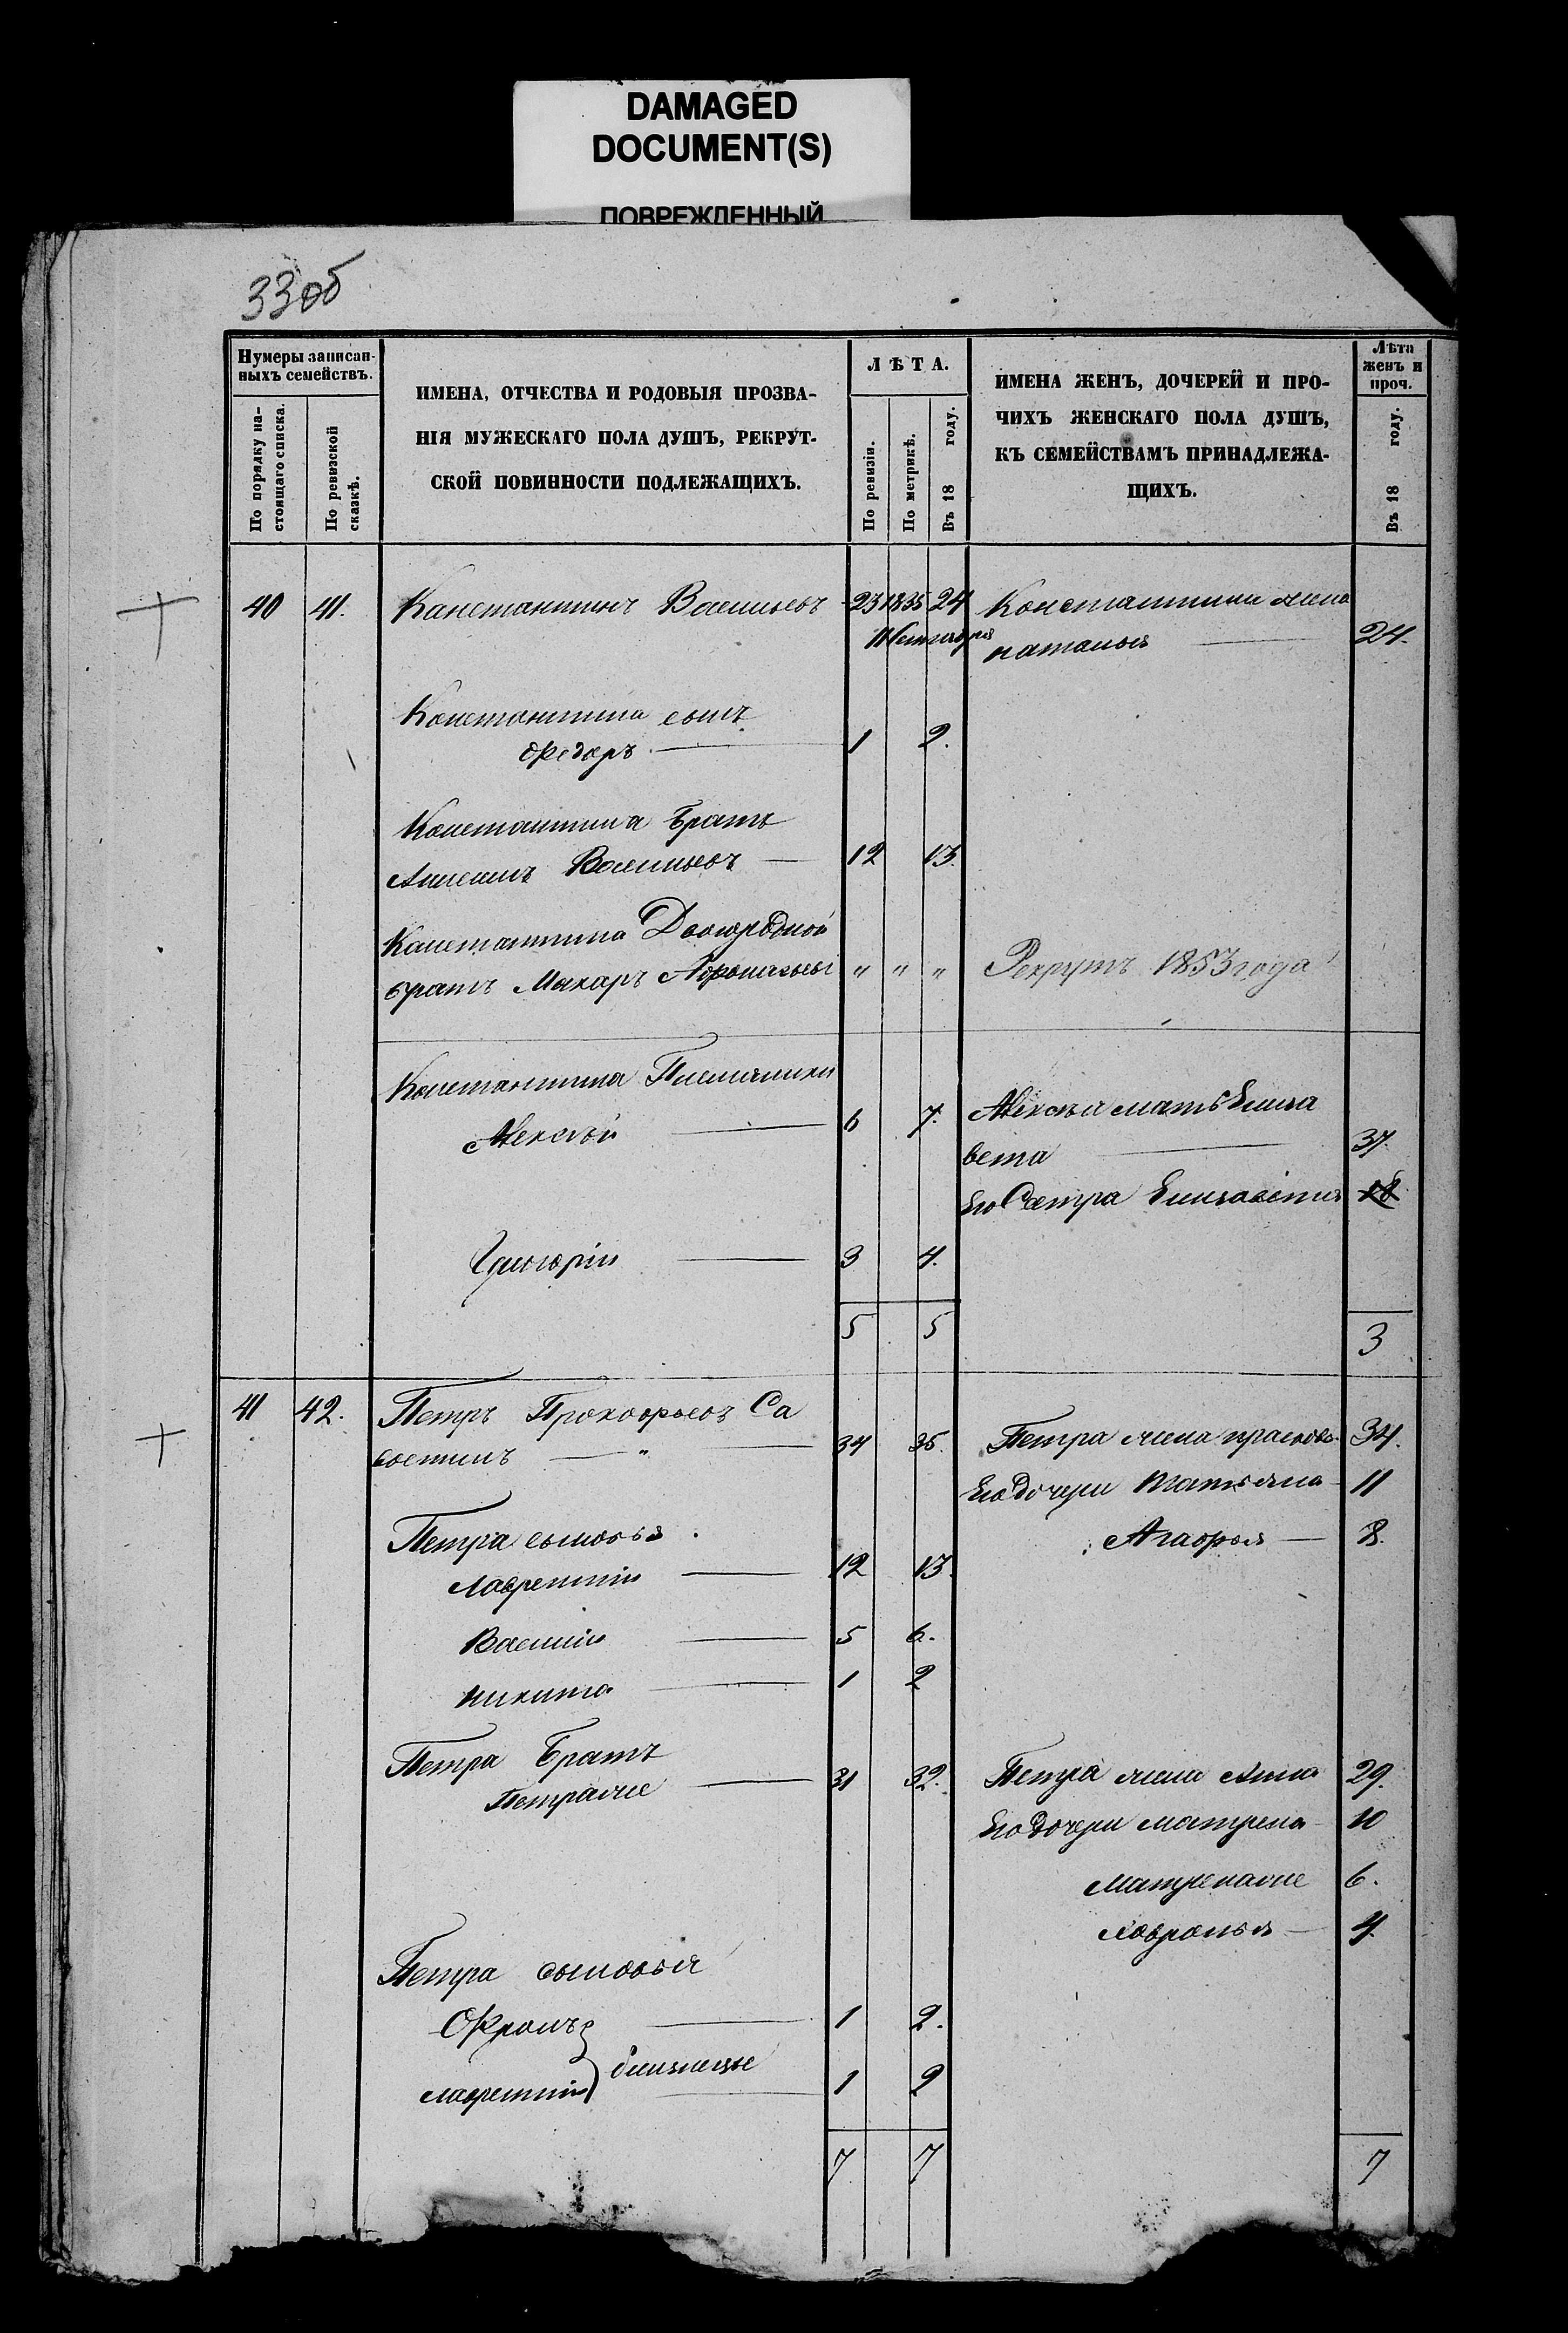 DAMAGED
DOCUMENT(S)
ПОВРЕЖДЕННЫЙ
33об
Нумеры записан-
ныхъ семействъ.
По порядку на-
стоящаго списка.
По ревизской
сказкѣ.
ИМЕНА, ОТЧЕСТВА И РОДОВЫЯ ПРОЗВА-
НІЯ МУЖЕСКАГО ПОЛА ДУШЪ, РЕКРУТ-
СКОЙ ПОВИННОСТИ ПОДЛЕЖАЩИХЪ.
ЛѢТА.
По ревизіи.
По метрикѣ.
Въ 18 году.
ИМЕНА ЖЕНЪ, ДОЧЕРЕЙ И ПРО-
ЧИХЪ ЖЕНСКАГО ПОЛА ДУШЪ,
КЪ СЕМЕЙСТВАМЪ ПРИНАДЛЕЖА-
ЩИХЪ.
Лѣта
женъ и
проч.
Въ 18 году.
40 41. Канстантинъ Васильевъ 23 1835 24 Константина жена
наталья 24.
Константина сынъ
Федоръ 1 2.
Константина братъ
Васильевъ 12 13.
Константина Двоюродной
братъ Макаръ Афонасьевъ " " " Рекрутъ 1853 года
Константина Племяники
Алексѣй 6 7. Алексѣя мать Елиза
вета 37.
Его Сестра Елизавета 18
Григорій 3 4.
5 5 3
41 42. Петръ Прокофьевъ Са
востинъ " 34 35. Петра жена прасковья 34.
Его дочери Татьяна 11
Петра сыновья Агафья 8.
Лаврентій 12 13.
Василій 5 6.
никита 1 2
Петра Братъ
Петръ же 31 32. Петра жена Анна 29.
Его дочери матрена 10
Матрена же 6.
4.
Петра сыновья
Фролъ 1 2.
близнецы
Лаврентій 1 2
7 7 7